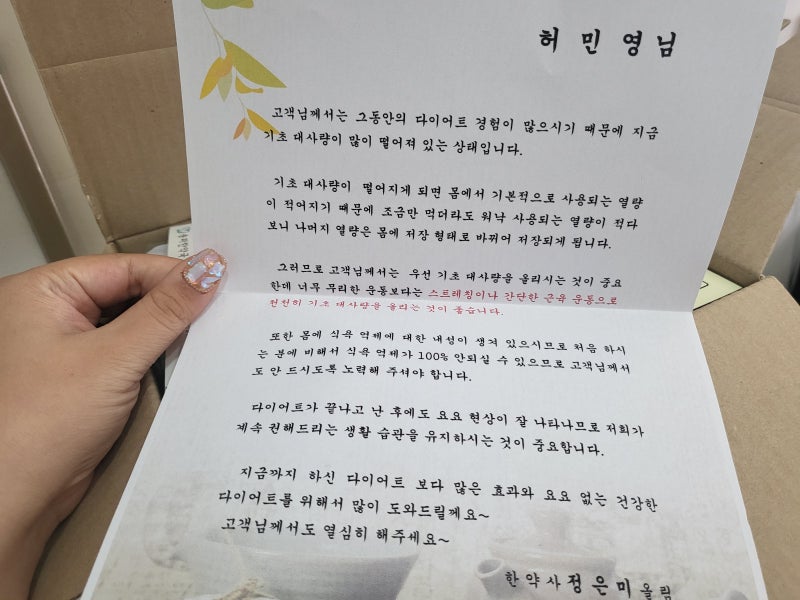 허 민 영 님
고객님께서는 그동안의 다이어트 경험이 많으시기 때문에 지금
기초 대사량이 많이 떨어져 있는 상태입니다.
기초 대사량이 떨어지게 되면 몸에서 기본적으로 사용되는 열량
이 적어지기 때문에 조금만 먹더라도 워낙 사용되는 열량이 적다
보니 나머지 열량은 몸에 저장 형태로 바뀌어 저장되게 됩니다.
그러므로 고객님께서는 우선 기초 대사량을 올리시는 것이 중요
한데 너무 무리한 운동보다는 스트레칭이나 간단한 근육 운동으로
천천히 기초 대사량을 올리는 것이 좋습니다.
또한 몸에 식욕 억제에 대한 내성이 생겨 있으시므로 처음 하시
는 분에 비해서 식욕 억제가 100% 안되실 수 있으므로 고객님께서
도 안 드시도록 노력해 주셔야 합니다.
다이어트가 끝나고 난 후에도 요요 현상이 잘 나타나므로 저희가
계속 권해드리는 생활 습관을 유지하시는 것이 중요합니다.
지금까지 하신 다이어트 보다 많은 효과와 요요 없는 건강한
다이어트를 위해서 많이 도와드릴께요~
고객님께서도 열심히 해주세요~
한약사 정 은 미 올림